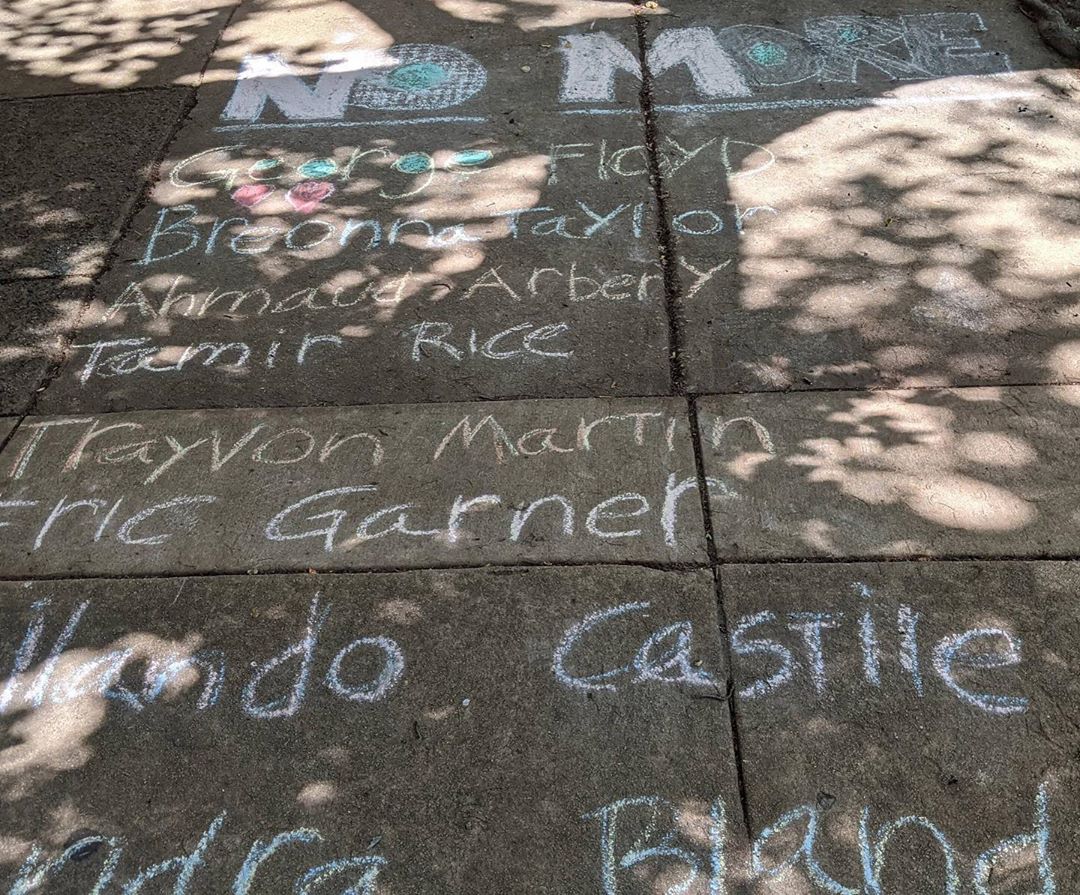 NO MORE
George Floyd
Breonna Taylor
Ahmaud Arbery
Tamir Rice
Trayvon Martin
Eric Garner
ilando Castile
ndra Bland